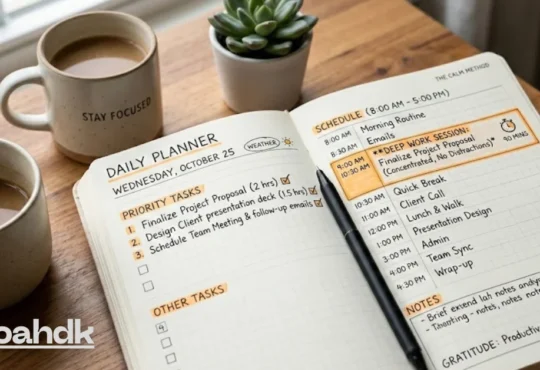 STAY FOCUSED
DAILY PLANNER
WEDNESDAY, OCTOBER 25
WEATHER
PRIORITY TASKS
1. Finalize Project Proposal (2 hrs)
2. Design Client presentation deck (1.5 hrs)
3. Schedule Team Meeting & follow-up emails
OTHER TASKS
4
THE CALM METHOD
SCHEDULE (8:00 AM - 5:00 PM)
8:00 AM Morning Routine
8:30 AM Emails
9:00 AM **DEEP WORK SESSION:
10:30 AM Finalize Project Proposal
(Concentrated, No Distractions)*
90 MINS
10:30 AM Quick Break
11:00 AM Client Call
12:00 PM Lunch & Walk
1:00 PM Presentation Design
3:00 PM Admin
4:00 PM Team Sync
4:30 PM Wrap-up
NOTES
- Brief extend last notes
- notes, notes
GRATITUDE: Productiv
oahdk